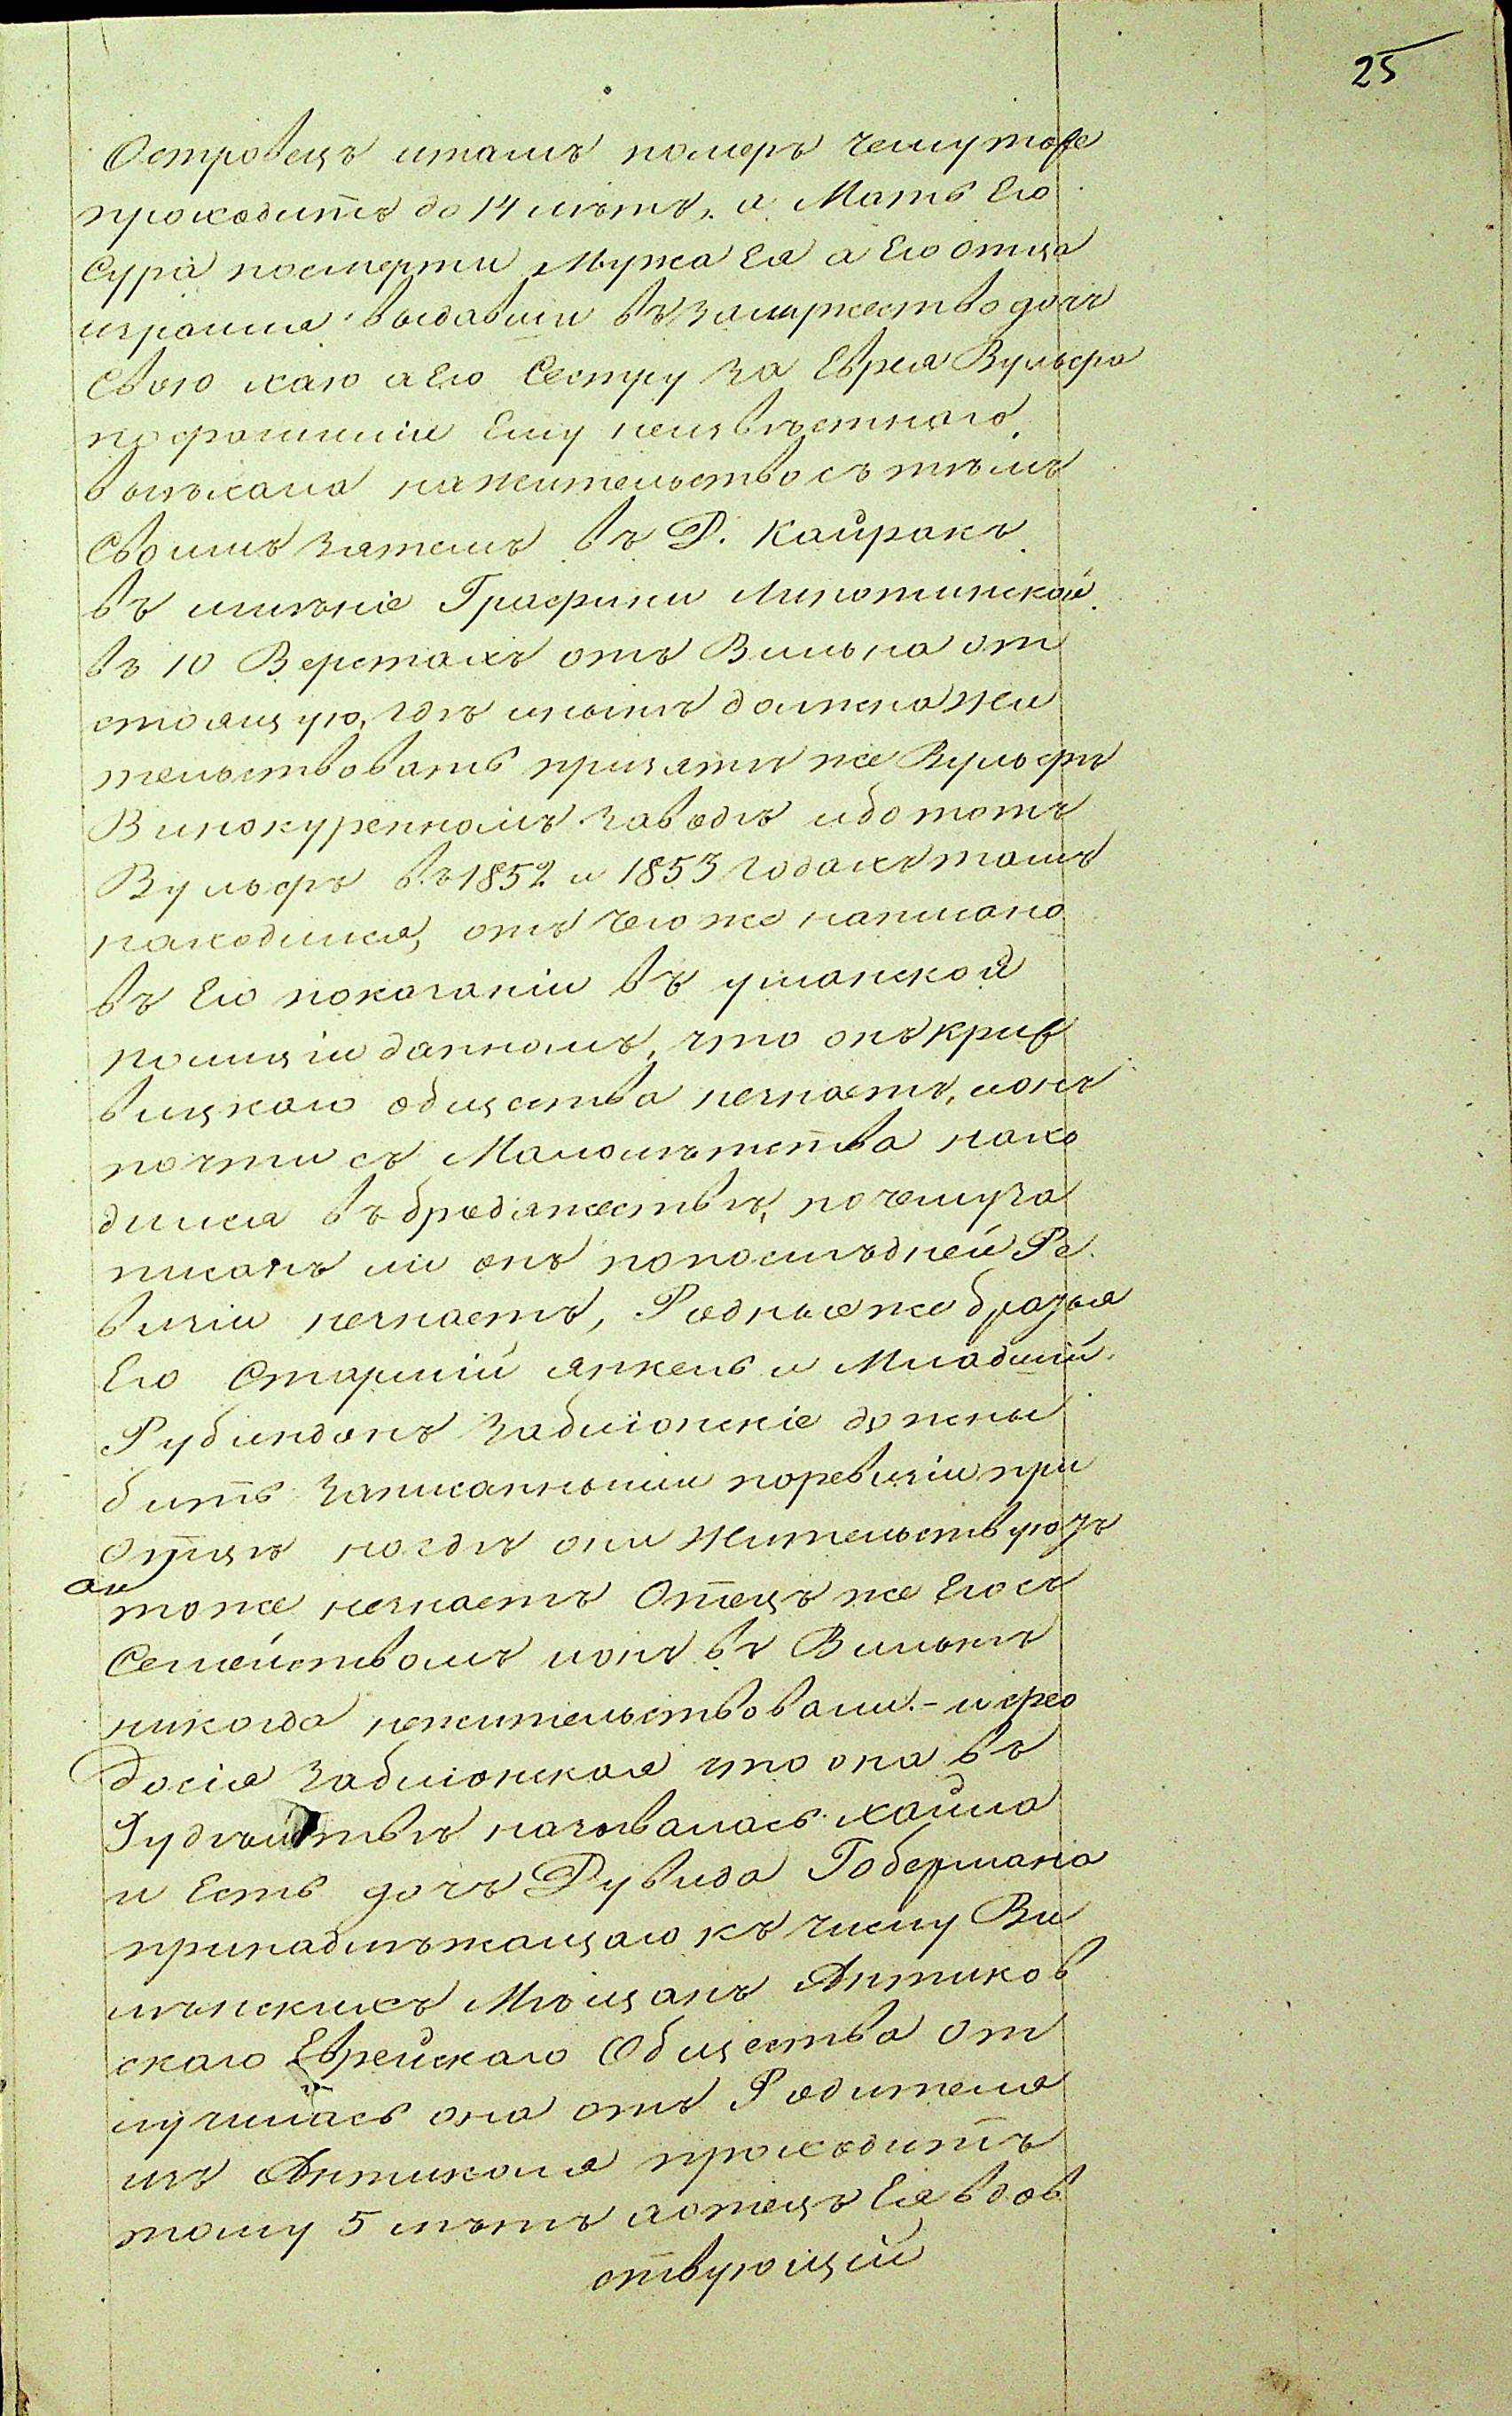 25
Островецъ итамъ померъ чему тоже
проходитъ до 14 лѣтъ, а Мать Его
Сура посмерти Мужа Ея а Его отца
израиля выдавши въ замужество дочь
Свою хаю а Его Сестру за Еврея Вульфа
пофамиліи Ему неизвѣстнаго
выѣхала нажительство сътѣмъ
Своимъ зятемъ въ Д. Кайракъ
въ имѣніе Графини
въ 10 Верстахъ отъ Вильна от
стоящую, гдѣ инынѣ должна жи
тельствовать призятѣ же Вульфѣ
Винокуренномъ заводѣ ибо тотъ
Вульфъ въ 1852 и 1853 годахъ тамъ
находился, отъ чегоже написано
въ Его показаніи въ уманской
полиціи данномъ, что онъ Крив
вицкаго общества незнаетъ, ионъ
почти съ Малолѣтства нахо
дился въ бродяжествѣ, почему за
писанъ ли онъ попослѣдней Ре
визіи незнаетъ, Родные же братья
Его Старшій янкель и Младшій
Рубиндонъ Забліонскіе должны
бить Записанными поревизіи при
Отцѣ ногдѣ они жительствуютъ
он
тоже незнаетъ Отецъ же Его съ
Семействомъ ионъ въ Вильнѣ
никогда нежительствовали. – и фео
досія Заблионская что она въ
Іудѣйствѣ называлась хайма
и Есть дочь Рувида Гобермана
принадлѣжащаго къ числу Ви
лѣнскихъ Мѣщанъ Антиков
скаго Еврейскаго Общества от
лучилась она отъ Родителя
изъ Антиколя проходитъ
тому 5 лѣтъ аотецъ Ея вдов
ствующій